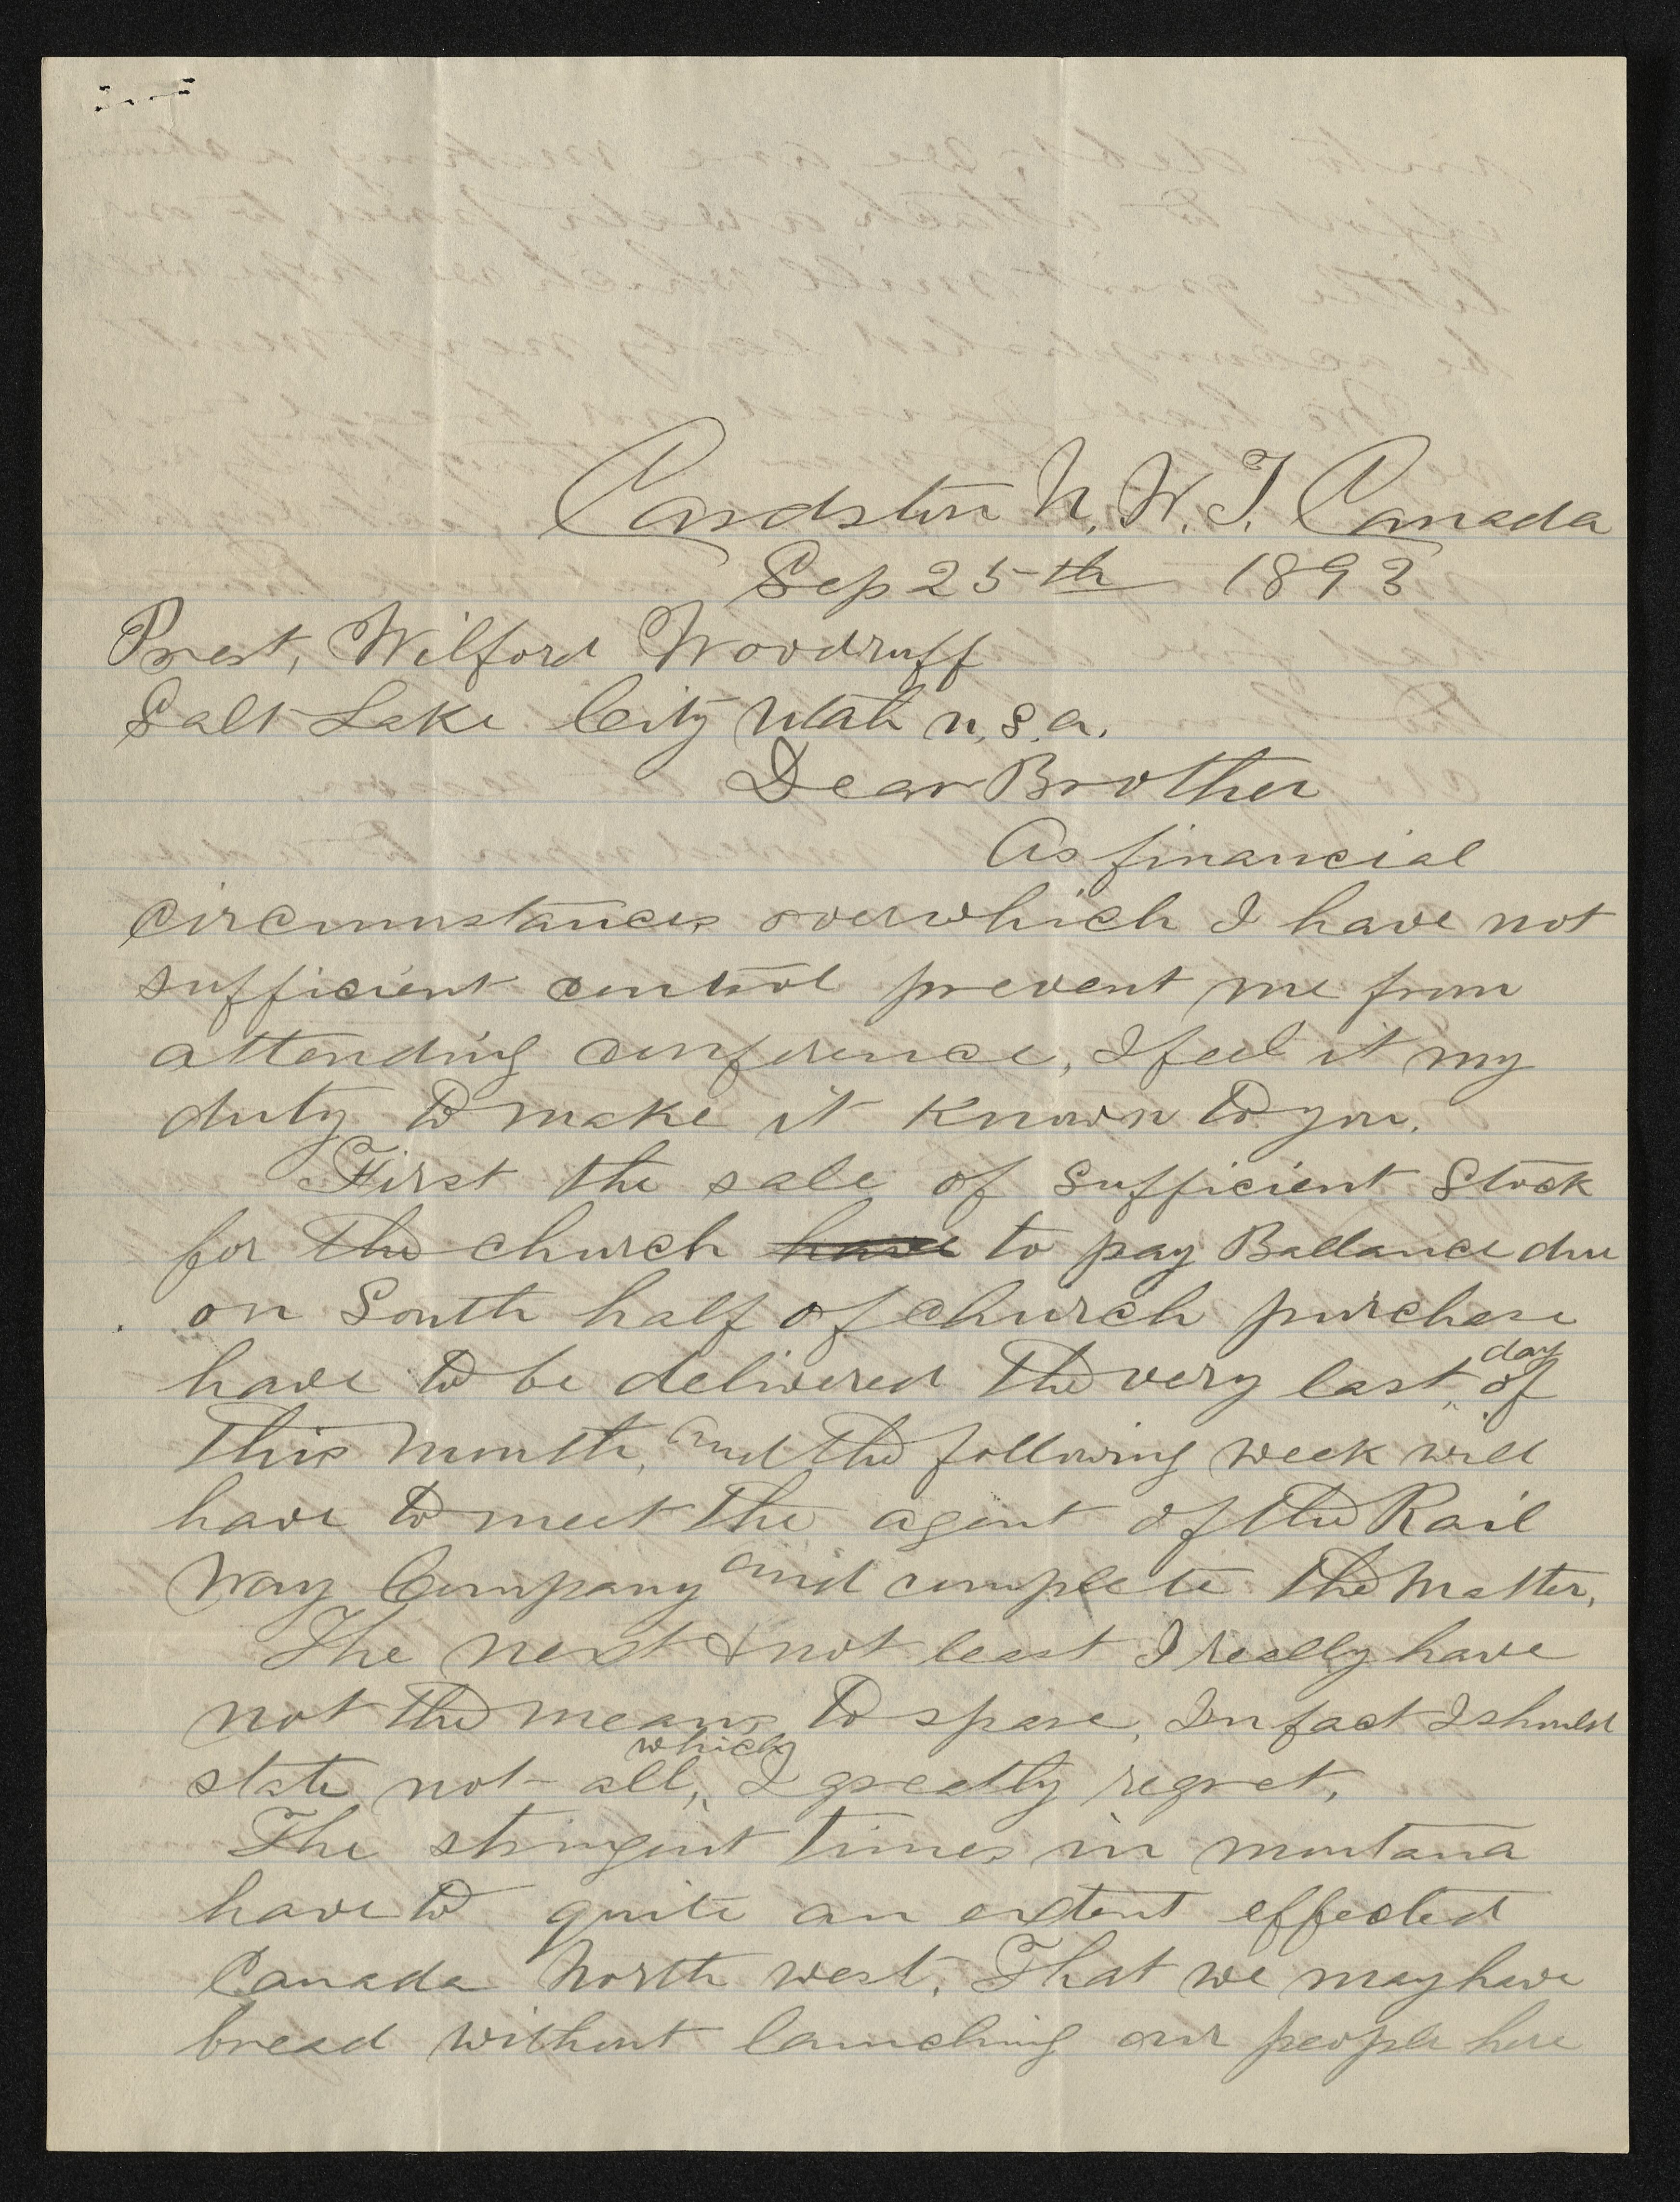 Cardston N. W. T. Canada
Sep 25th 1893
Prest, Wilford Woodruff
Salt Lake City Utah U.S.A.
Dear Brother
As financial
circumstances over which I have not
sufficient control prevent me from
attending conference, I feel it my
duty to make it Known to you.
First the sale of Sufficient Stock
for the church have to pay Ballance due
on South half of church purchase
have to be delivered the very last day of
This Month, and the following week will
have to meet the agent of the Rail
Way Company and complete the Matter,
The next & not least I really have
not the means to spare, In fact I should
state not all, which I greatly regret,
The stringent times in montana
have to quite an extent effected
Canada North west, That we may have
bread without launching our people here